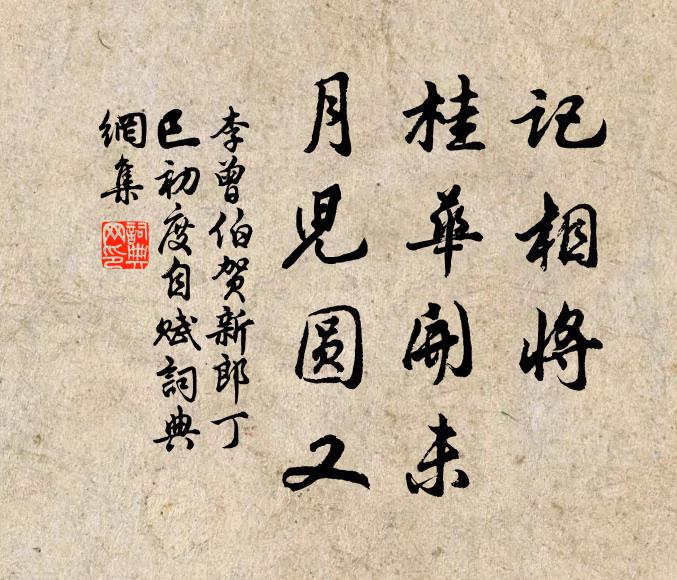 记相将
桂华开未
月儿圆又
李曾伯贺新郎丁
巳初度自赋词典
网集
词典网印